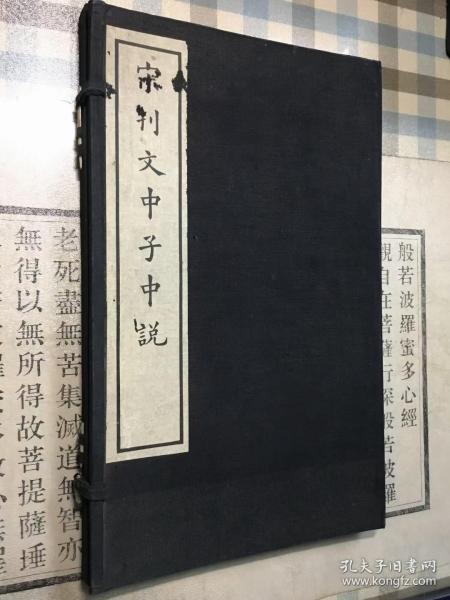 宋刊文中子中説
般若波羅蜜多心經
觀自在菩薩行深般若波羅
老死盡無苦集滅道無智亦
無得以無所得故菩提薩埵
孔夫子旧书网
www.kongfz.com